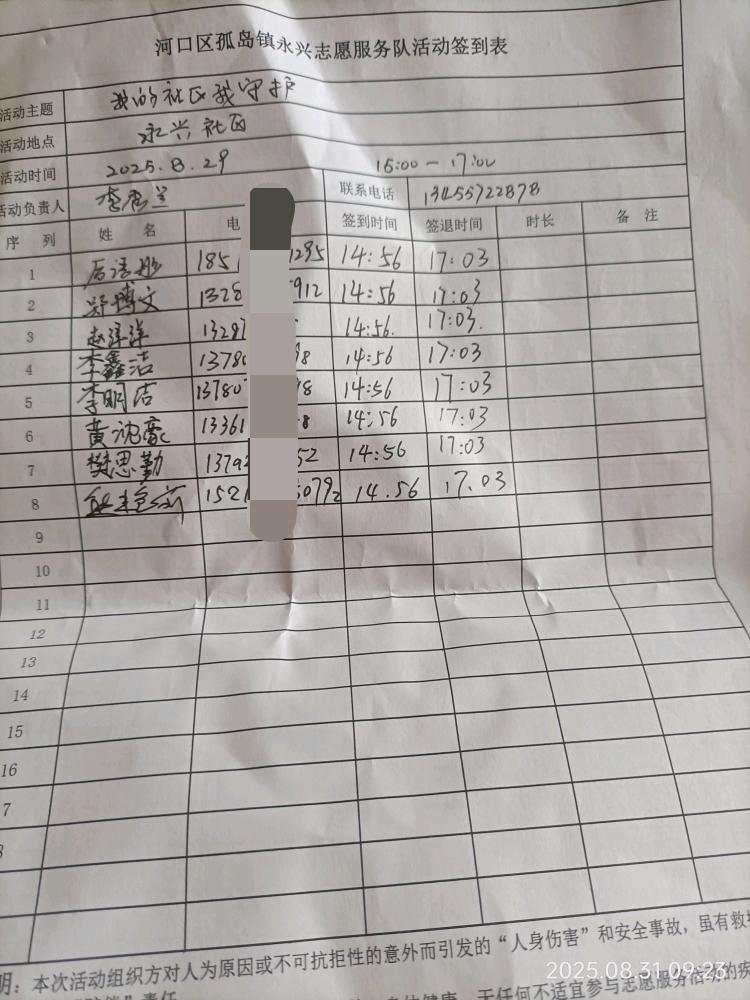 河口区孤岛镇永兴志愿服务队活动签到表
活动主题 我的社区我守护
活动地点 永兴社区
活动时间 2025.8.29 15:00－17:00
活动负责人 李秀兰 联系电话 13455722878
序 列 姓 名 电 签到时间 签退时间 时长 备 注
1 185 1295 14:56 17:03
2 郑博文 1328 912 14:56 17:03
3 赵洋洋 1328 14:56. 17:03.
4 李鑫洁 1378 98 14:56 17:03
5 李明洁 13780 98 14:56 17:03
6 13361 8 14:56 17:03
7 樊思勤 1379 52 14:56 17:03
8 152 5079 14.56 17.03
9
10
11
12
13
14
15
16
7
8
明：本次活动组织方对人为原因或不可抗拒性的意外而引发的“人身伤害”和安全事故，虽有救
责任
身体健康，无任何不适宜参与志愿服务活动的疾
2025.08.31 09:23